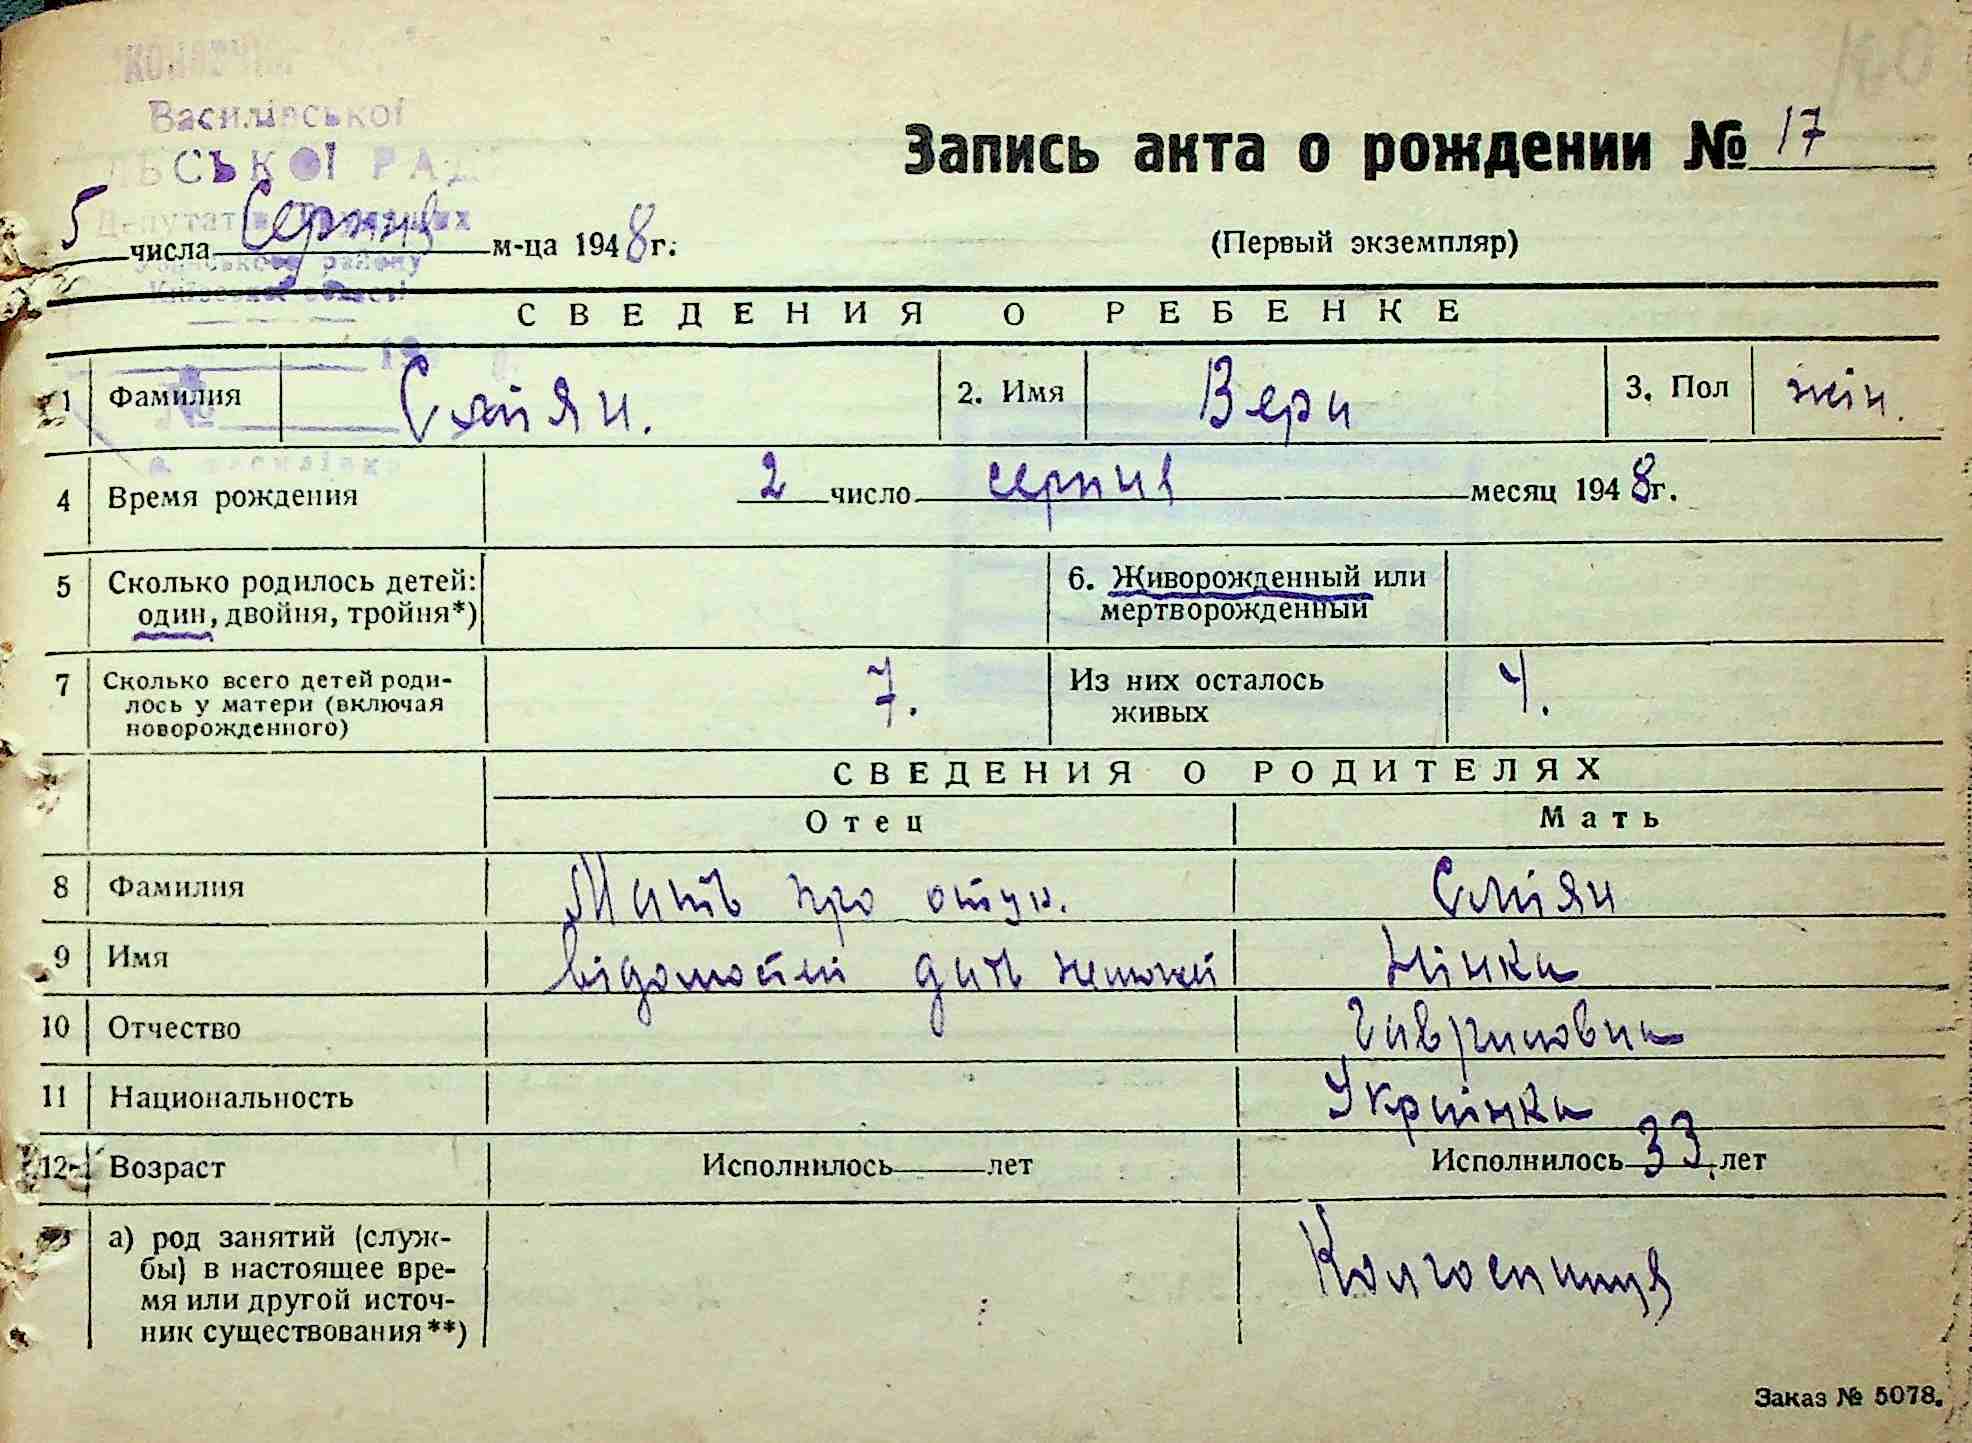 Василівської
ЛЬСЬКОЇ РАД
Депутатів Трудящих
району
Київської області
Запись акта о рождении № 17
5 числа Серпня м-ца 1948 г.
(Первый экземпляр)
СВЕДЕНИЯ О РЕБЕНКЕ
1 Фамилия Сміян. 2. Имя Вера 3. Пол жін.
4 Время рождения 2 число серпня месяц 1948 г.
5 Сколько родилось детей: один, двойня, тройня*) 6. Живорожденный или мертворожденный
7 Сколько всего детей роди-
лось у матери (включая
новорожденного) 7. Из них осталось живых 4.
СВЕДЕНИЯ О РОДИТЕЛЯХ
Отец Мать
8 Фамилия Мать про отця. Сміян
9 Имя відомостей дать неможе Нінка
10 Отчество Гавриловна
11 Национальность Українка
12 Возраст Исполнилось лет Исполнилось 33. лет
а) род занятий (служ-
бы) в настоящее вре-
мя или другой источ-
ник существования**) Колгоспниця
Заказ № 5078.